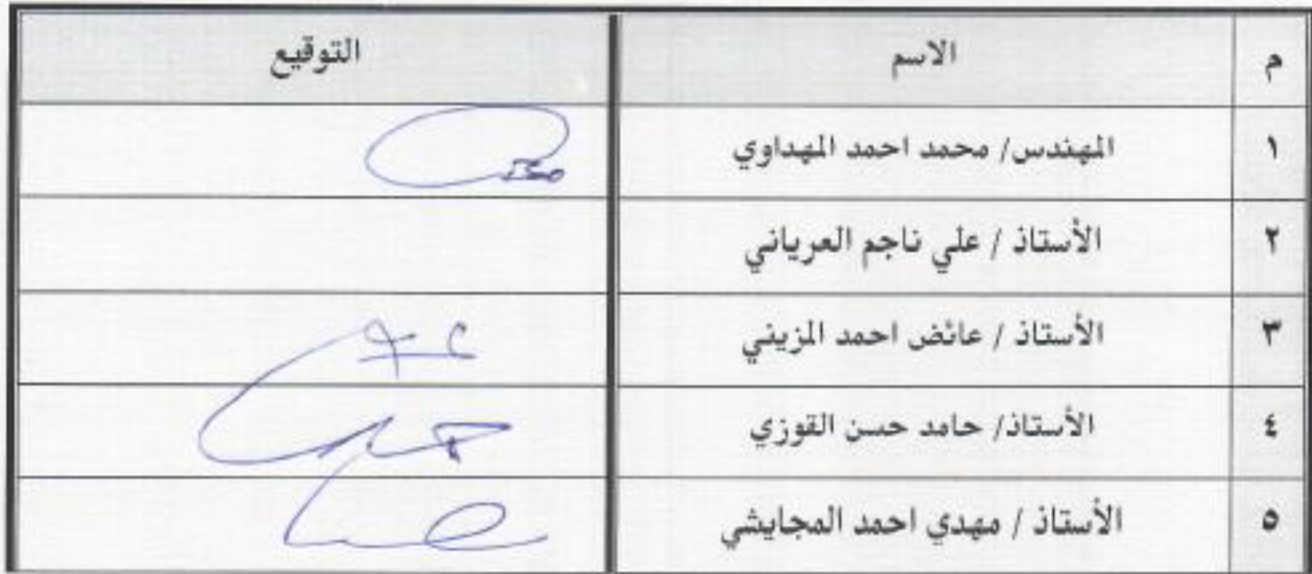 م الاسم التوقيع
١ المهندس/ محمد احمد المهداوي
٢ الأستاذ / علي ناجم العرياني
٣ الأستاذ / عائض احمد المزيني
٤ الأستاذ/ حامد حسن القوزي
٥ الأستاذ / مهدي احمد المجايشي